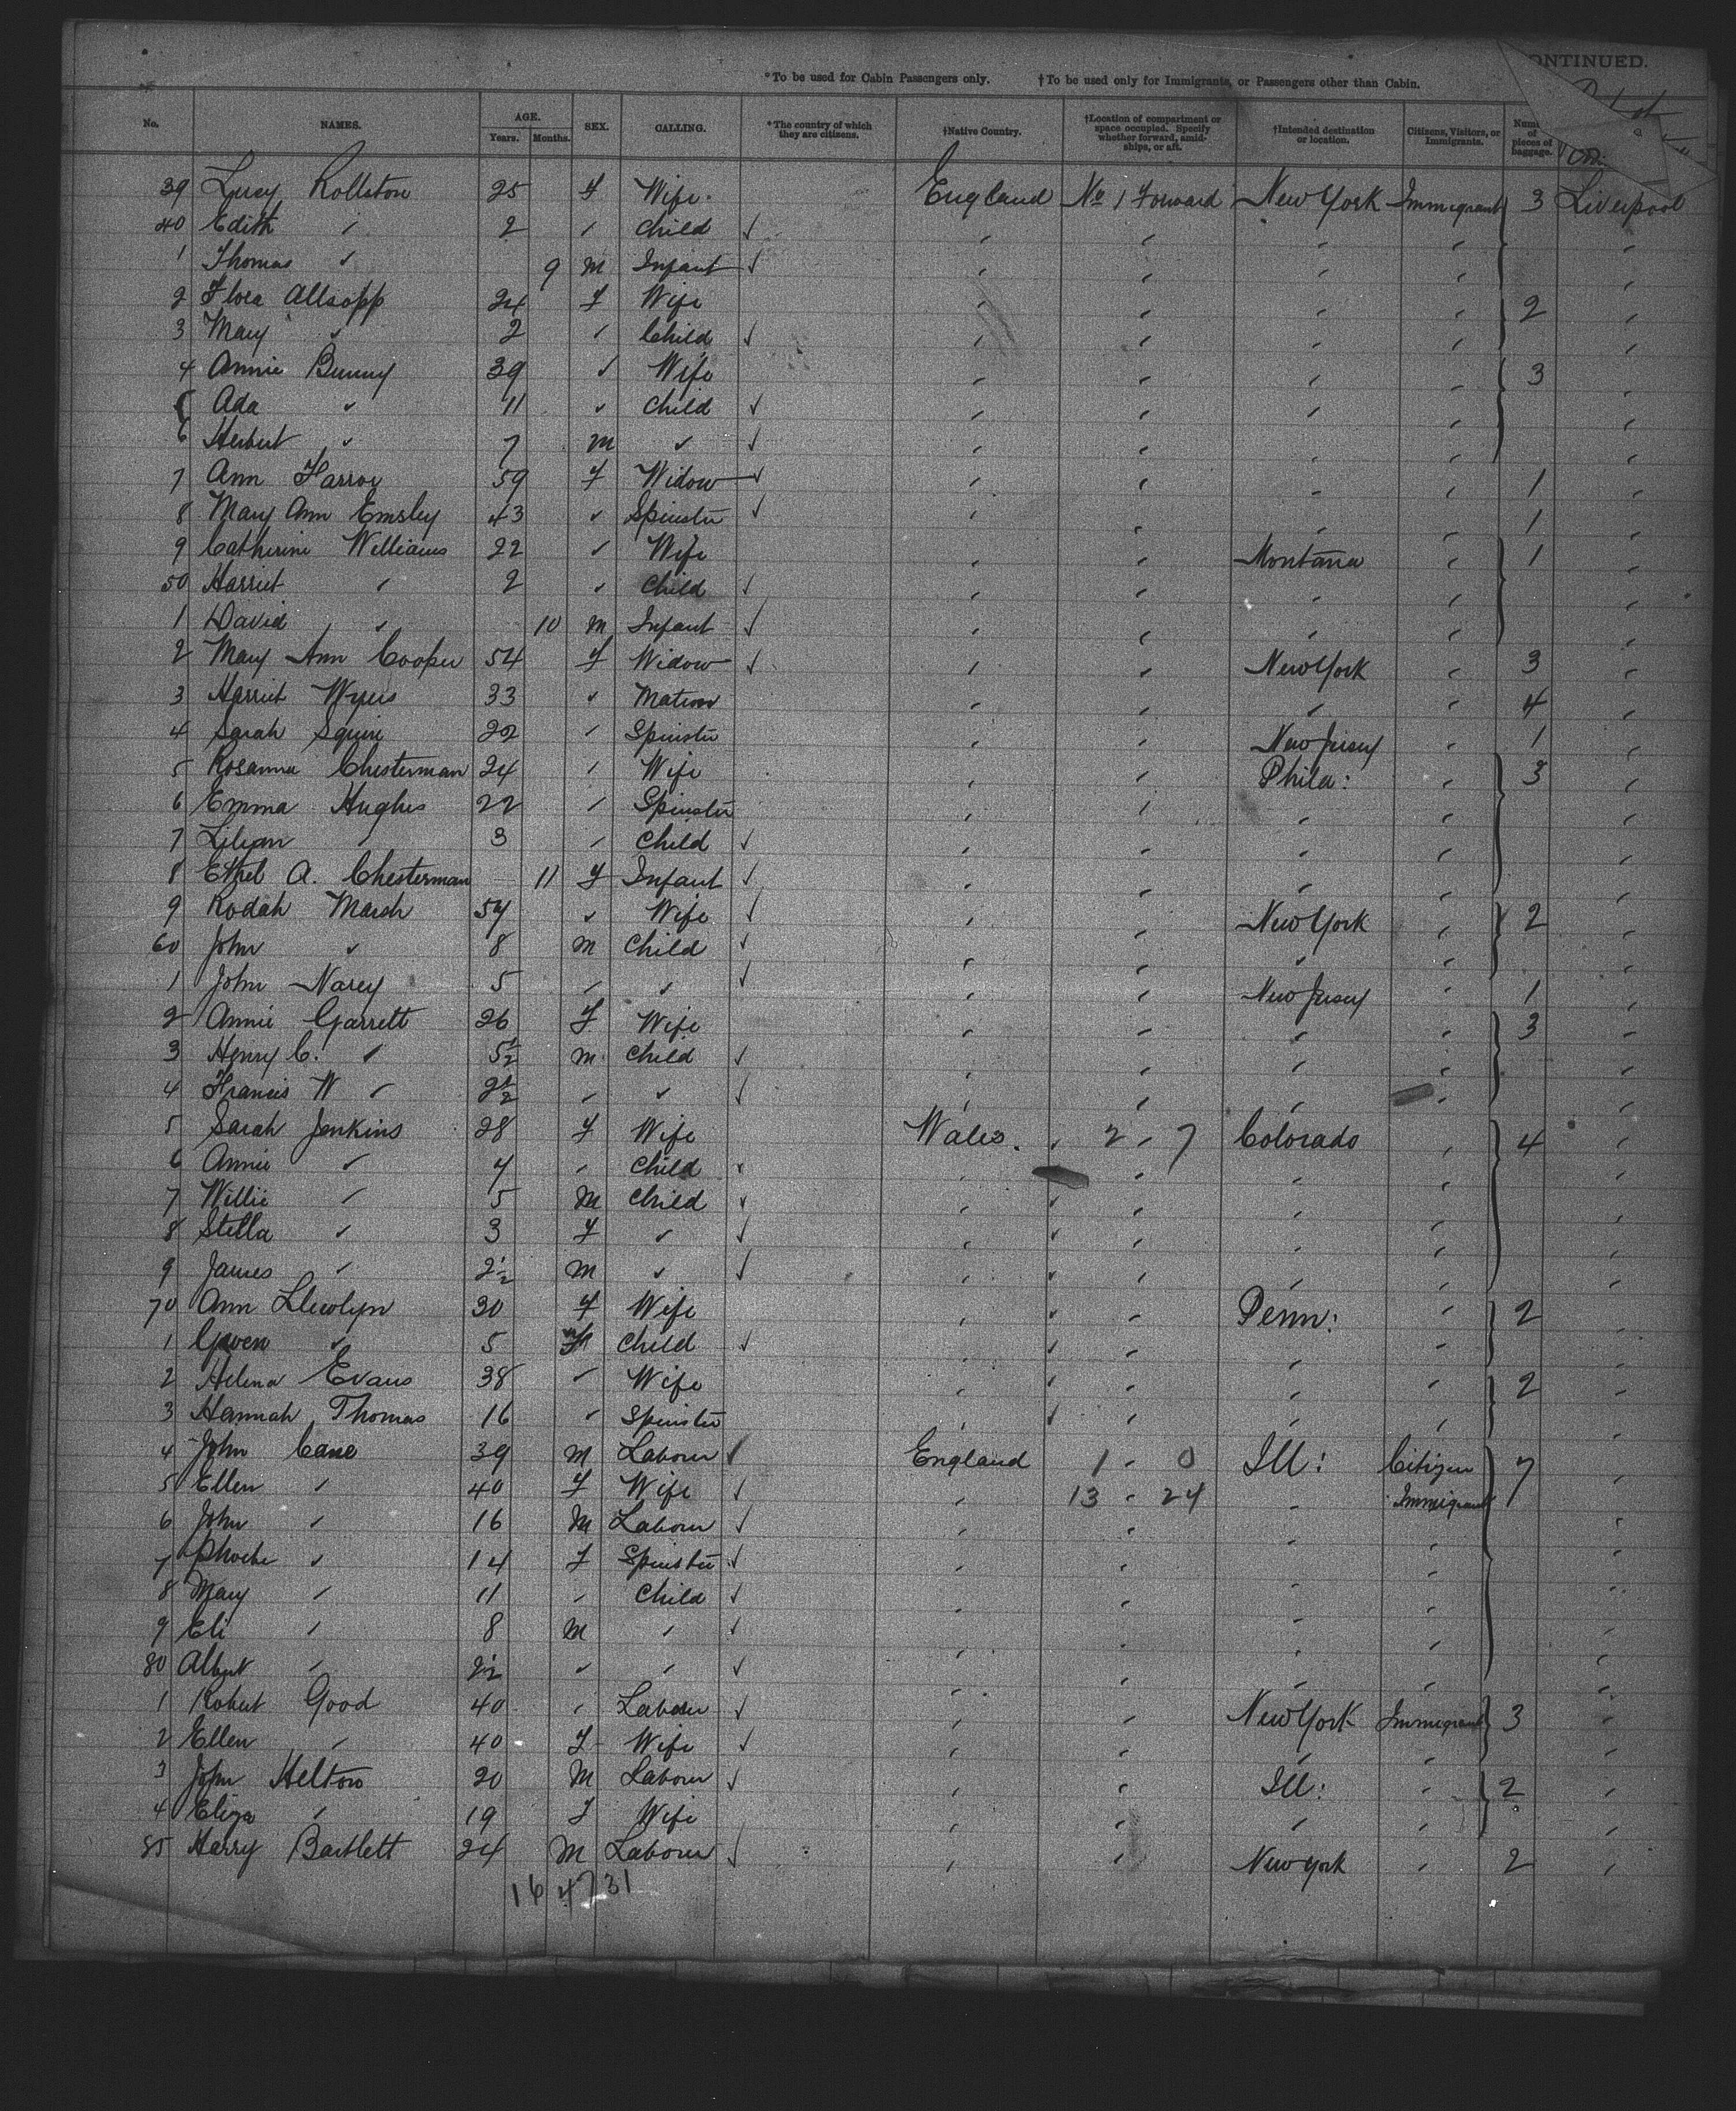 CONTINUED.
*To be used for Cabin Passengers only. †To be used only for Immigrants, or Passengers other than Cabin.
No. NAMES. AGE. Years. Months. SEX. CALLING. *The country of which they are citizens. †Native Country. †Location of compartment or space occupied. Specify whether forward, amidships, or aft. †Intended destination or location. Citizens, Visitors, or Immigrants. of pieces of baggage.
39 Lucy Rollston 25 F Wife England No 1 Forward New York Immigrant 3 Liverpool
40 Edith " 2 " Child " " " " "
1 Thomas " 9 M Infant " " " " "
2 Flora Allsopp 24 F Wife " " " " 2 "
3 Mary " 2 " Child " " " " "
4 Annie Bunny 39 " Wife " " " " 3 "
5 Ada " 11 " Child " " " " "
6 Herbert " 7 M " " " " " "
7 Ann 59 F Widow " " " " 1 "
8 Mary Ann Emsley 43 " Spinster " " " " 1 "
9 Catherine Williams 22 " Wife " " Montana " 1 "
50 Harriet " 2 " Child " " " " "
1 David " 10 M Infant " " " " "
2 Mary Ann Cooper 54 F Widow " " New York " 3 "
3 Harriet 33 " Matron " " " " 4 "
4 Sarah Squire 22 " Spinster " " New Jersey " 1 "
5 Rosanna Chesterman 24 " Wife " " Phila: " 3 "
6 Emma Hughes 22 " Spinster " " " " "
7 Lilian " 3 " Child " " " " "
8 Ethel A. Chesterman 11 F Infant " " " " "
9 Rodah Marsh 54 " Wife " " New York " 2 "
60 John " 8 M Child " " " " "
1 John Narey 5 " " " " New Jersey " 1 "
2 Annie Garrett 26 F Wife " " " " 3 "
3 Henry C. " 5½ M Child " " " " "
4 Francis W " 2½ " " " " " " "
5 Sarah Jenkins 28 F Wife Wales " 2 " 7 Colorado " 4 "
6 Annie " 7 " Child " " " " "
7 Willie " 5 M Child " " " " "
8 Stella " 3 F " " " " " "
9 James " 2½ M " " " " " "
70 Ann Llewlyn 30 F Wife " " Penn: " 2 "
1 Gwen " 5 Child " " " " "
2 Helena Evans 38 " Wife " " " " 2 "
3 Hannah Thomas 16 " Spinster " " " " "
4 John Cane 39 M Labourer England 1 " 0 Ill: Citizen 7 "
5 Ellen " 40 F Wife " 13 " 24 " Immigrant "
6 John " 16 M Labourer " " " " "
7 Phoebe " 14 F Spinster " " " " "
8 Mary " 11 " Child " " " " "
9 Eli " 8 M " " " " " "
80 Albert " 2½ " " " " " " "
1 Robert Good 40 " Labourer " " New York Immigrant 3 "
2 Ellen " 40 F Wife " " " " "
3 John Helton 20 M Labourer " " Ill: " 2 "
4 Eliza " 19 F Wife " " " " "
85 Harry Bartlett 24 M Labourer " " New York " 2 "
16 4731